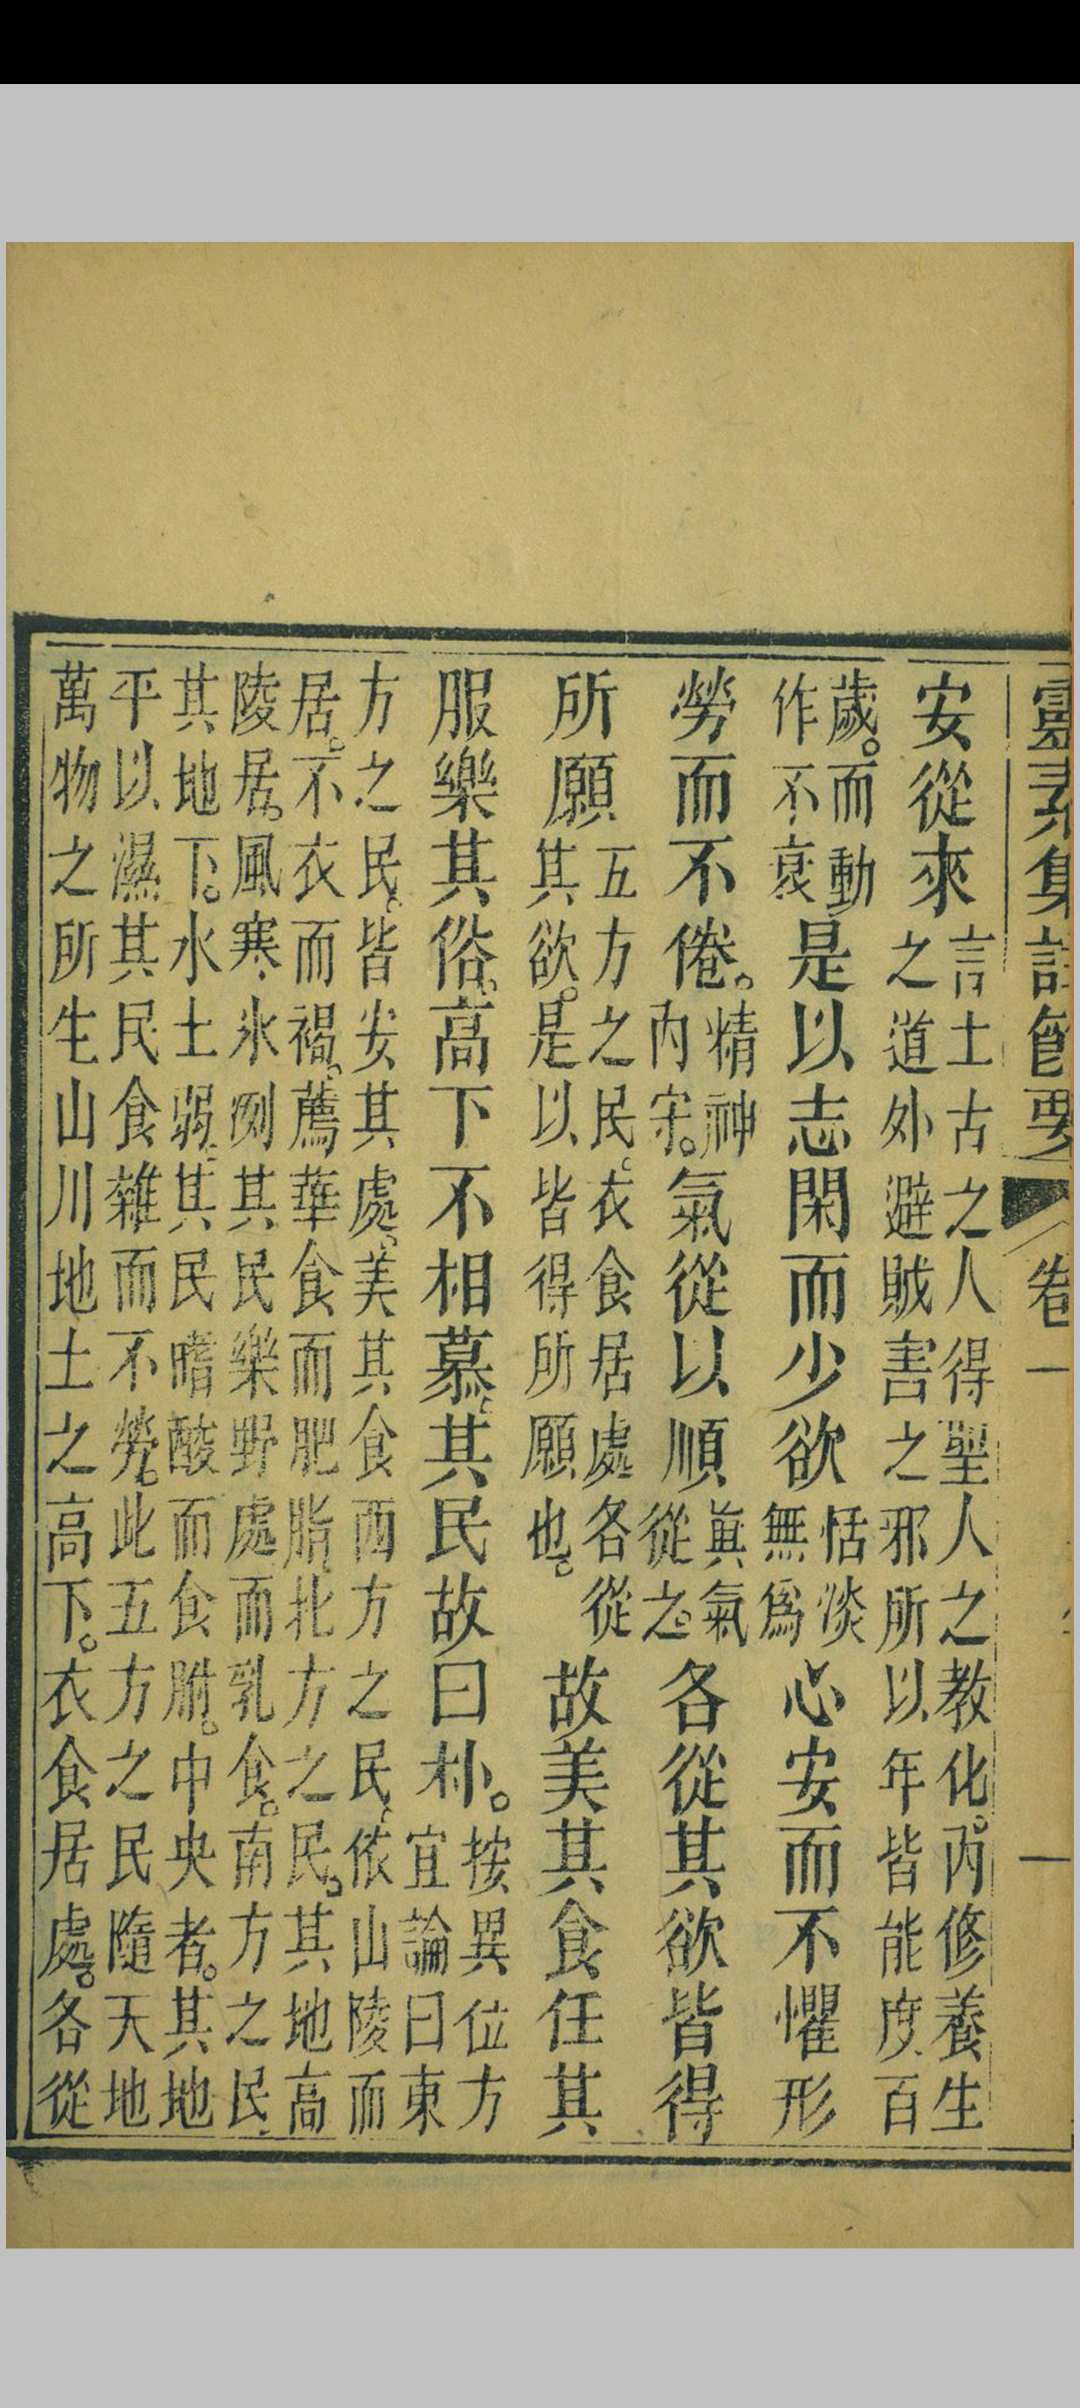 靈素集註節要 卷一 一
安從來 言上古之人得聖人之教化內修養生
之道外避賊害之邪所以年皆能度百
歲而動
作不衰 是以志閑而少欲 恬淡
無爲 心安而不懼形
勞而不倦 精神
內守 氣從以順 眞氣
從之 各從其欲皆得
所願 五方之民衣食居處各從
其欲是以皆得所願也 故美其食任其
服樂其俗高下不相慕其民故曰朴 按異位方
宜論曰東
方之民皆安其處美其食西方之民依山陵而
居不衣而褐薦華食而肥脂北方之民其地高
陵居風寒氷冽其民樂野處而乳食南方之民
其地下水土弱其民嗜酸而食胕中央者其地
平以濕其民食雜而不勞此五方之民隨天地
萬物之所生山川地土之高下衣食居處各從